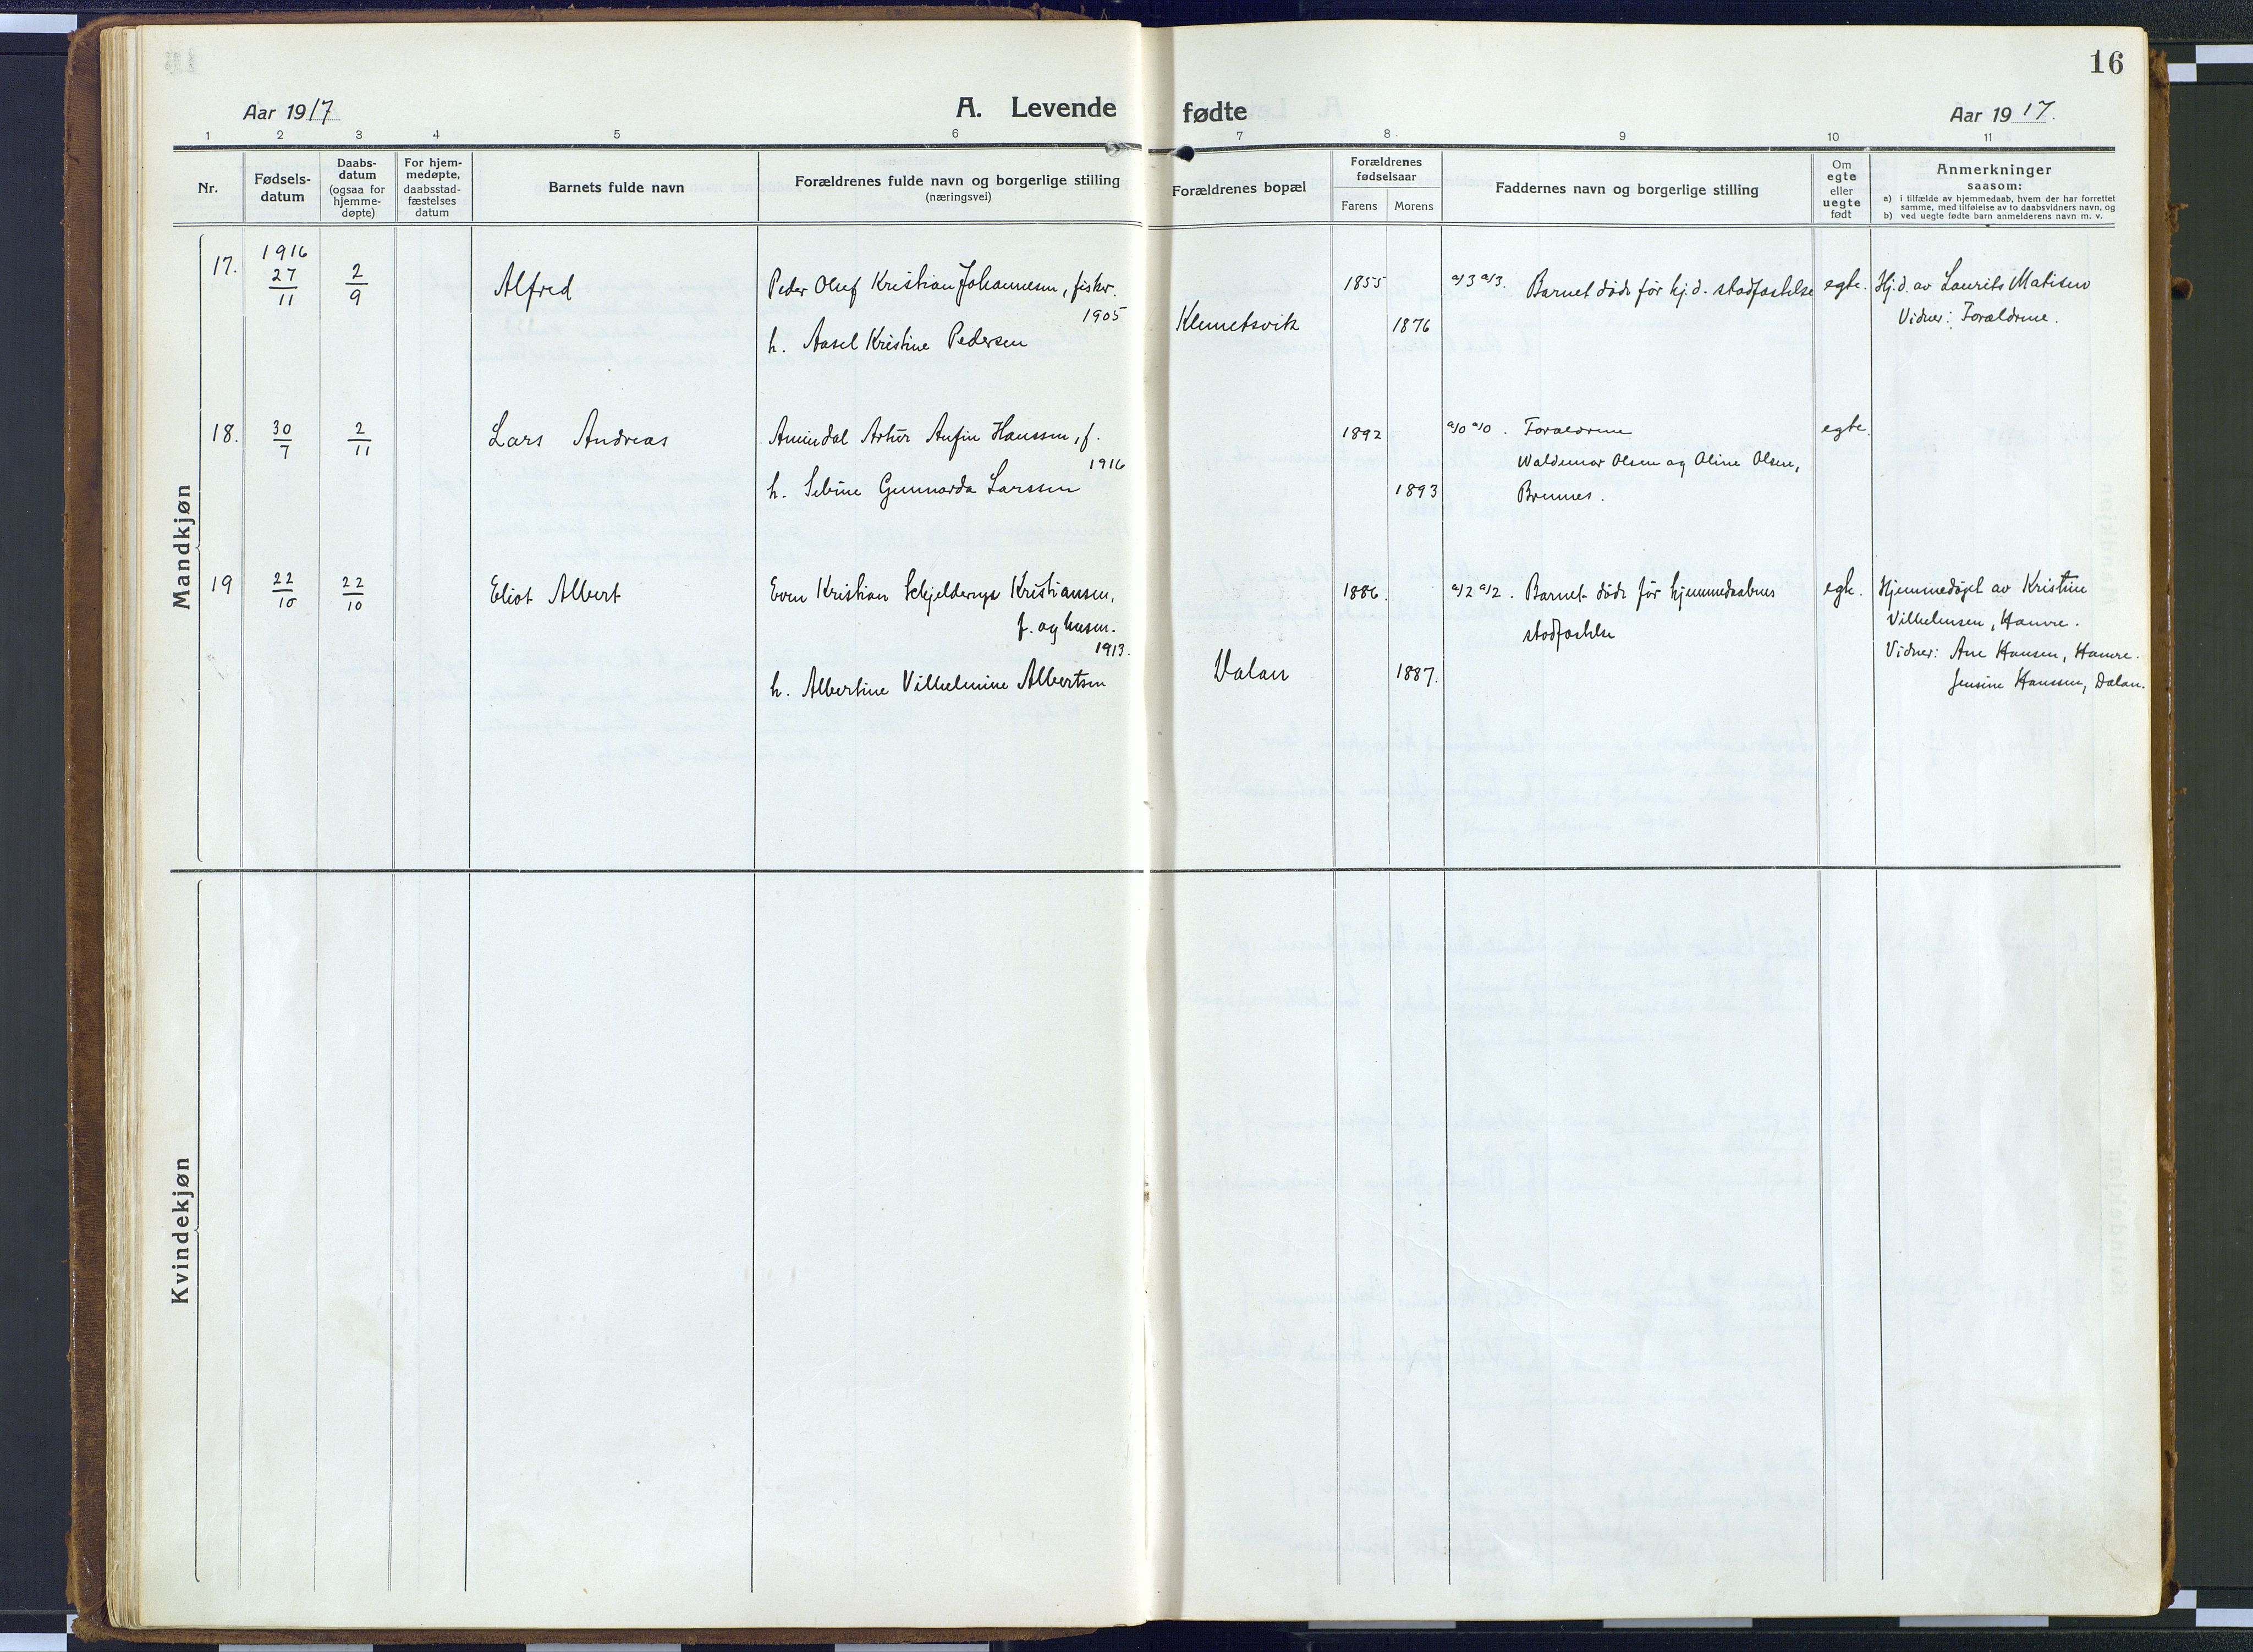 16
Aar 1917
A. Levende fødte
Aar 1917.
1 2 3 4 5 6 7 8 9 10 11
Nr.
Fødsels-
datum
Daabs-
datum
(ogsaa for
hjemme-
døpte)
For hjem-
medøpte,
daabsstad-
fæstelses
datum
Barnets fulde navn
Forældrenes fulde navn og borgerlige stilling
(næringsvei)
Forældrenes bopæl
Forældrenes
fødselsaar
Farens Morens
Faddernes navn og borgerlige stilling
Om
egte
eller
uegte
født
Anmerkninger
saasom:
a) i tilfælde av hjemmedaab, hvem der har forrettet
samme, med tilføielse av to daabsvidners navn, og
b) ved uegte fødte barn anmelderens navn m. v.
Mandkjøn
17. 1916
27/11 2/9 Alfred
Peder Oluf Kristian Johannesen, fisker.
1905
h. Aasel Kristine Pedersen
Klemetsvik
1855
1876
a/3 a/3. Barnet døde før hj.d. stadfæstelse
egte.
Hj.d. av Laurits Matisen
Vidner: Forældrene.
18. 30/7 2/11 Lars Andreas
Amindal Artur Anfin Hanssen, f.
1916
h. Sebine Gunnarda Larssen
1892
1893
a/0 a/0. Forældrene
Waldemar Olsen og Oline Olsen,
Brennes.
egte.
19 22/10 22/10 Eliot Albert
Even Kristian Schjelderup Kristiansen,
f. og husm.
1913.
h. Albertine Vilhelmine Albertsen
Dalan
1886.
1887.
a/2 a/2. Barnet døde før hjemmedaabens
stadfæstelse
egte.
Hjemmedøpt av Kristine
Vilhelmsen, Hamre.
Vidner: Ane Hansen, Hamre.
Jensine Hanssen, Dalan.
Kvindekjøn